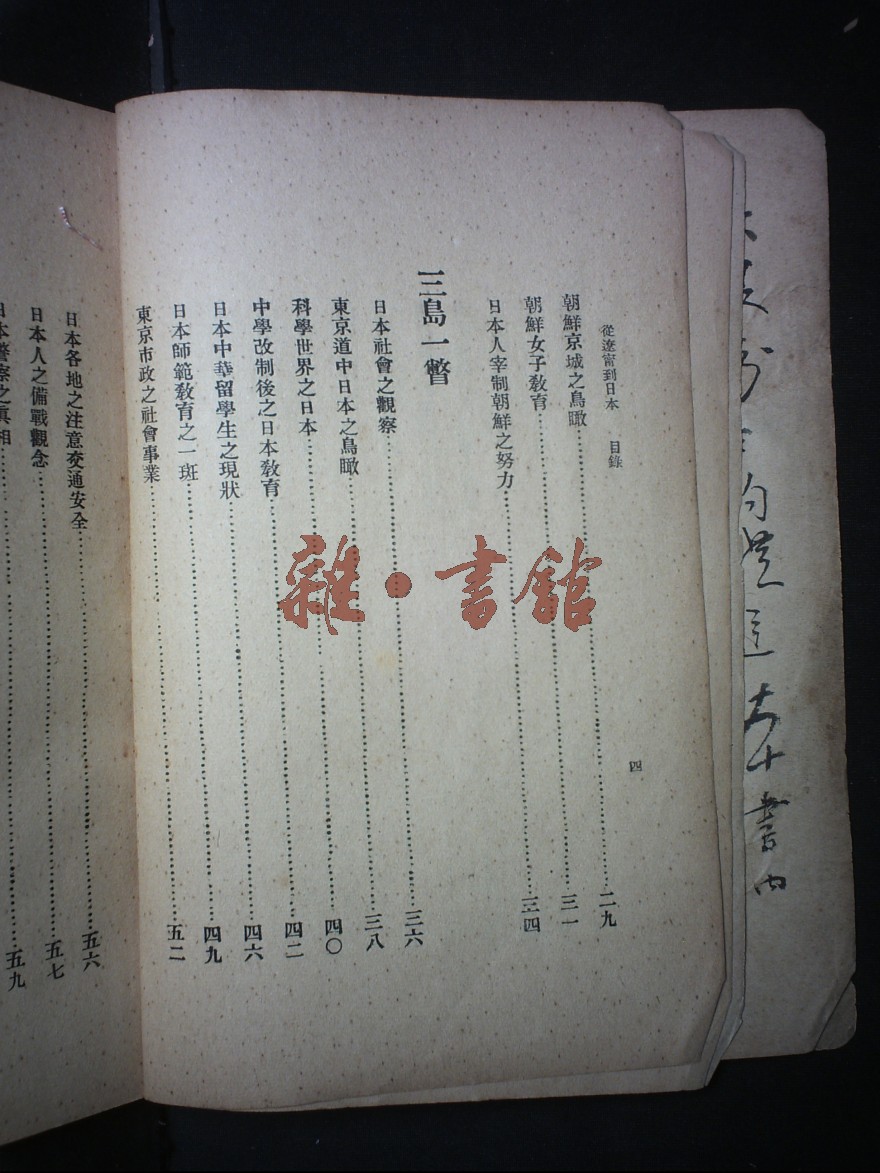 從遼甯到日本 目錄 四
朝鮮京城之鳥瞰……二九
朝鮮女子教育……三一
日本人宰制朝鮮之努力……三四
三島一瞥
日本社會之觀察……三六
東京道中日本之鳥瞰……三八
科學世界之日本……四〇
中學改制後之日本教育……四二
日本中華留學生之現狀……四六
日本師範教育之一班……四九
東京市政之社會事業……五二
日本各地之注意交通安全……五六
日本人之備戰觀念……五七
日本警察之眞相……五九
雜·書館